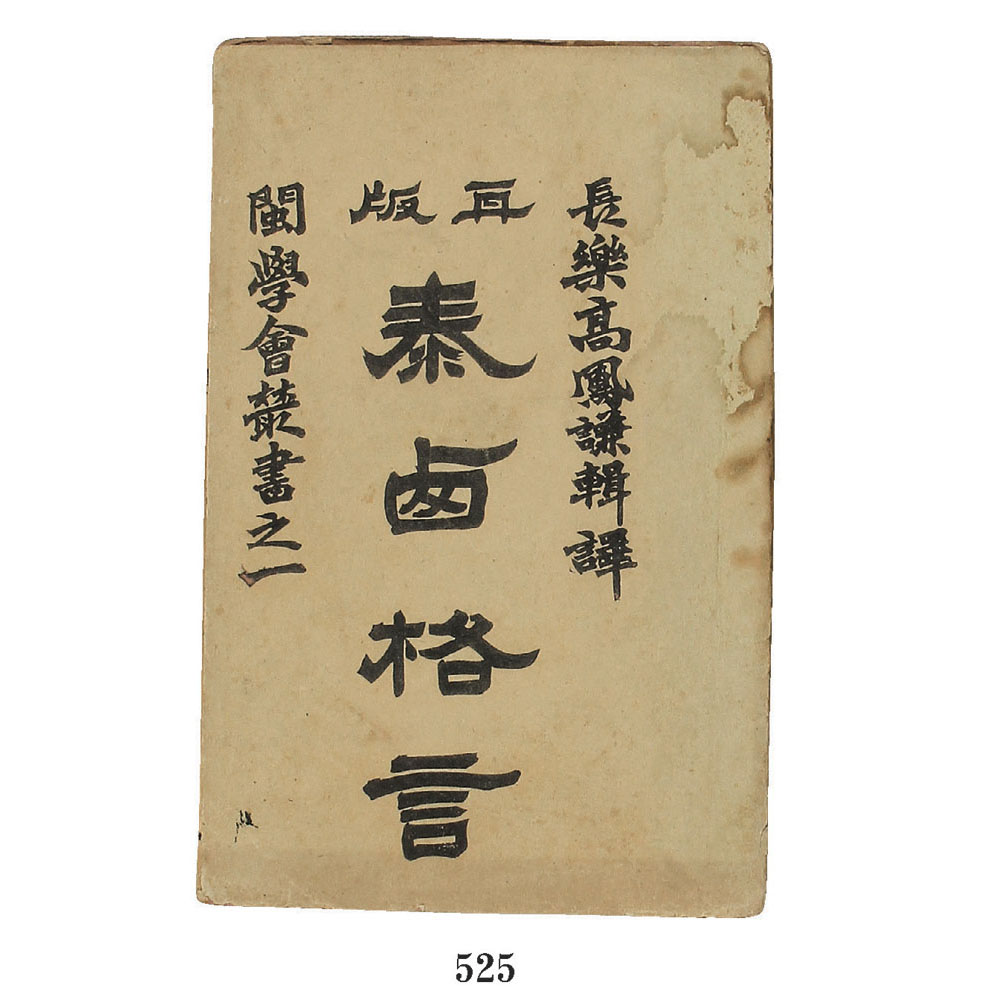 長樂高鳳謙輯譯
再版
泰西格言
閩學會叢書之一
525